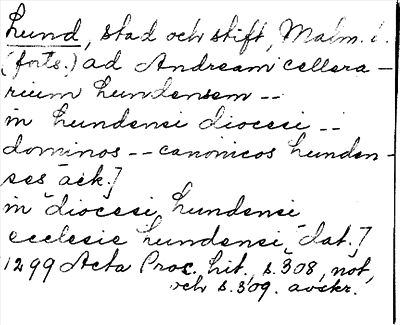 Lund, stad och stift, Malm. l.
(forts.) ad Andream cellera-
rium lundensem --
in lundensi diocesi --
dominos -- canonicos lunden-
ses ack.]
in diocesi lundensi
ecclesie lundensi, dat.]
1299 Acta Proc. lit., s. 308, not,
och s. 309. avskr.